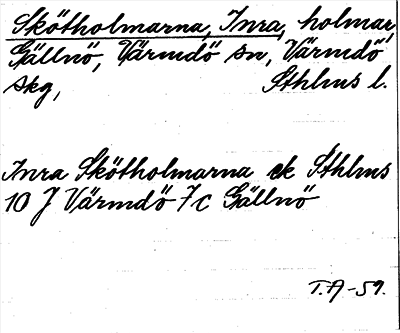 Skötholmarna, Inra, holmar,
Gällnö, Värmdö sn, Värmdö
skg, Sthlms l.
Inra Skötholmarna ek Sthlms
10 J Värmdö 7c Gällnö
T.A-59.